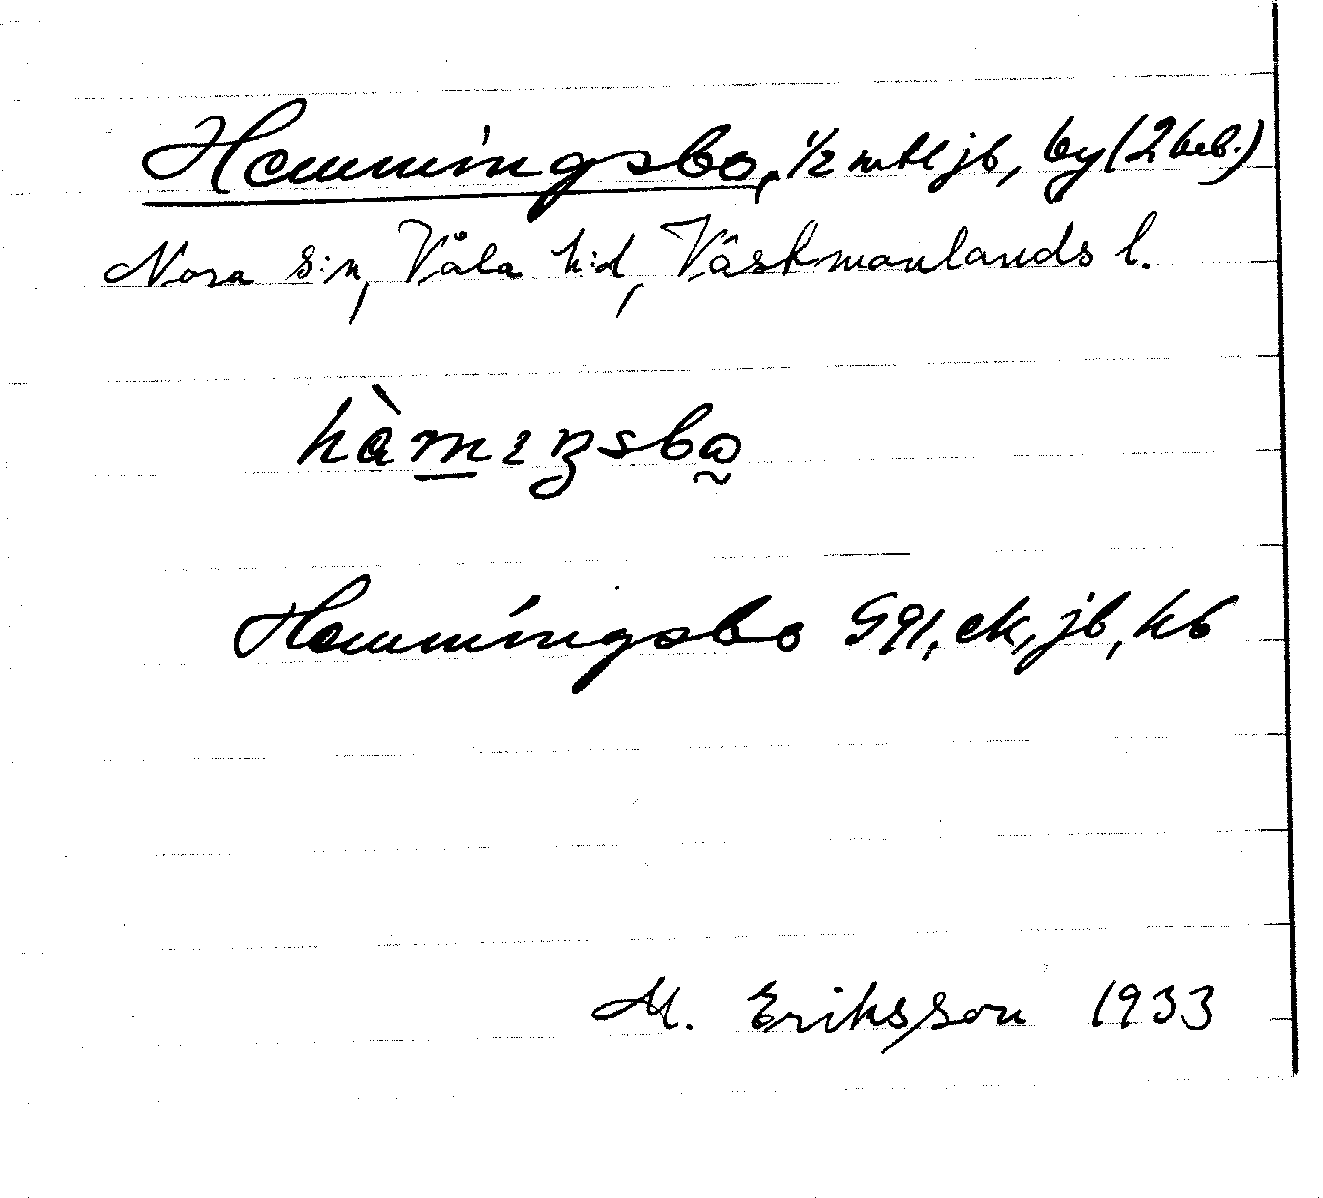 Hemmingsbo, 1/2 mtl jb, by (2 beb.)
Nora s:n, Våla h:d, Västmanlands l.
hàmıŋsbo̰
Hemmingsbo GQ1, ek, jb, kb
M. Eriksson 1933